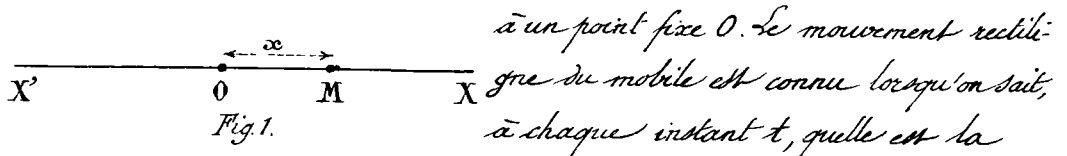 x
X' O M X
Fig. 1.
à un point fixe O. Le mouvement rectili-
gne du mobile est connu lorsqu'on sait,
à chaque instant t, quelle est la